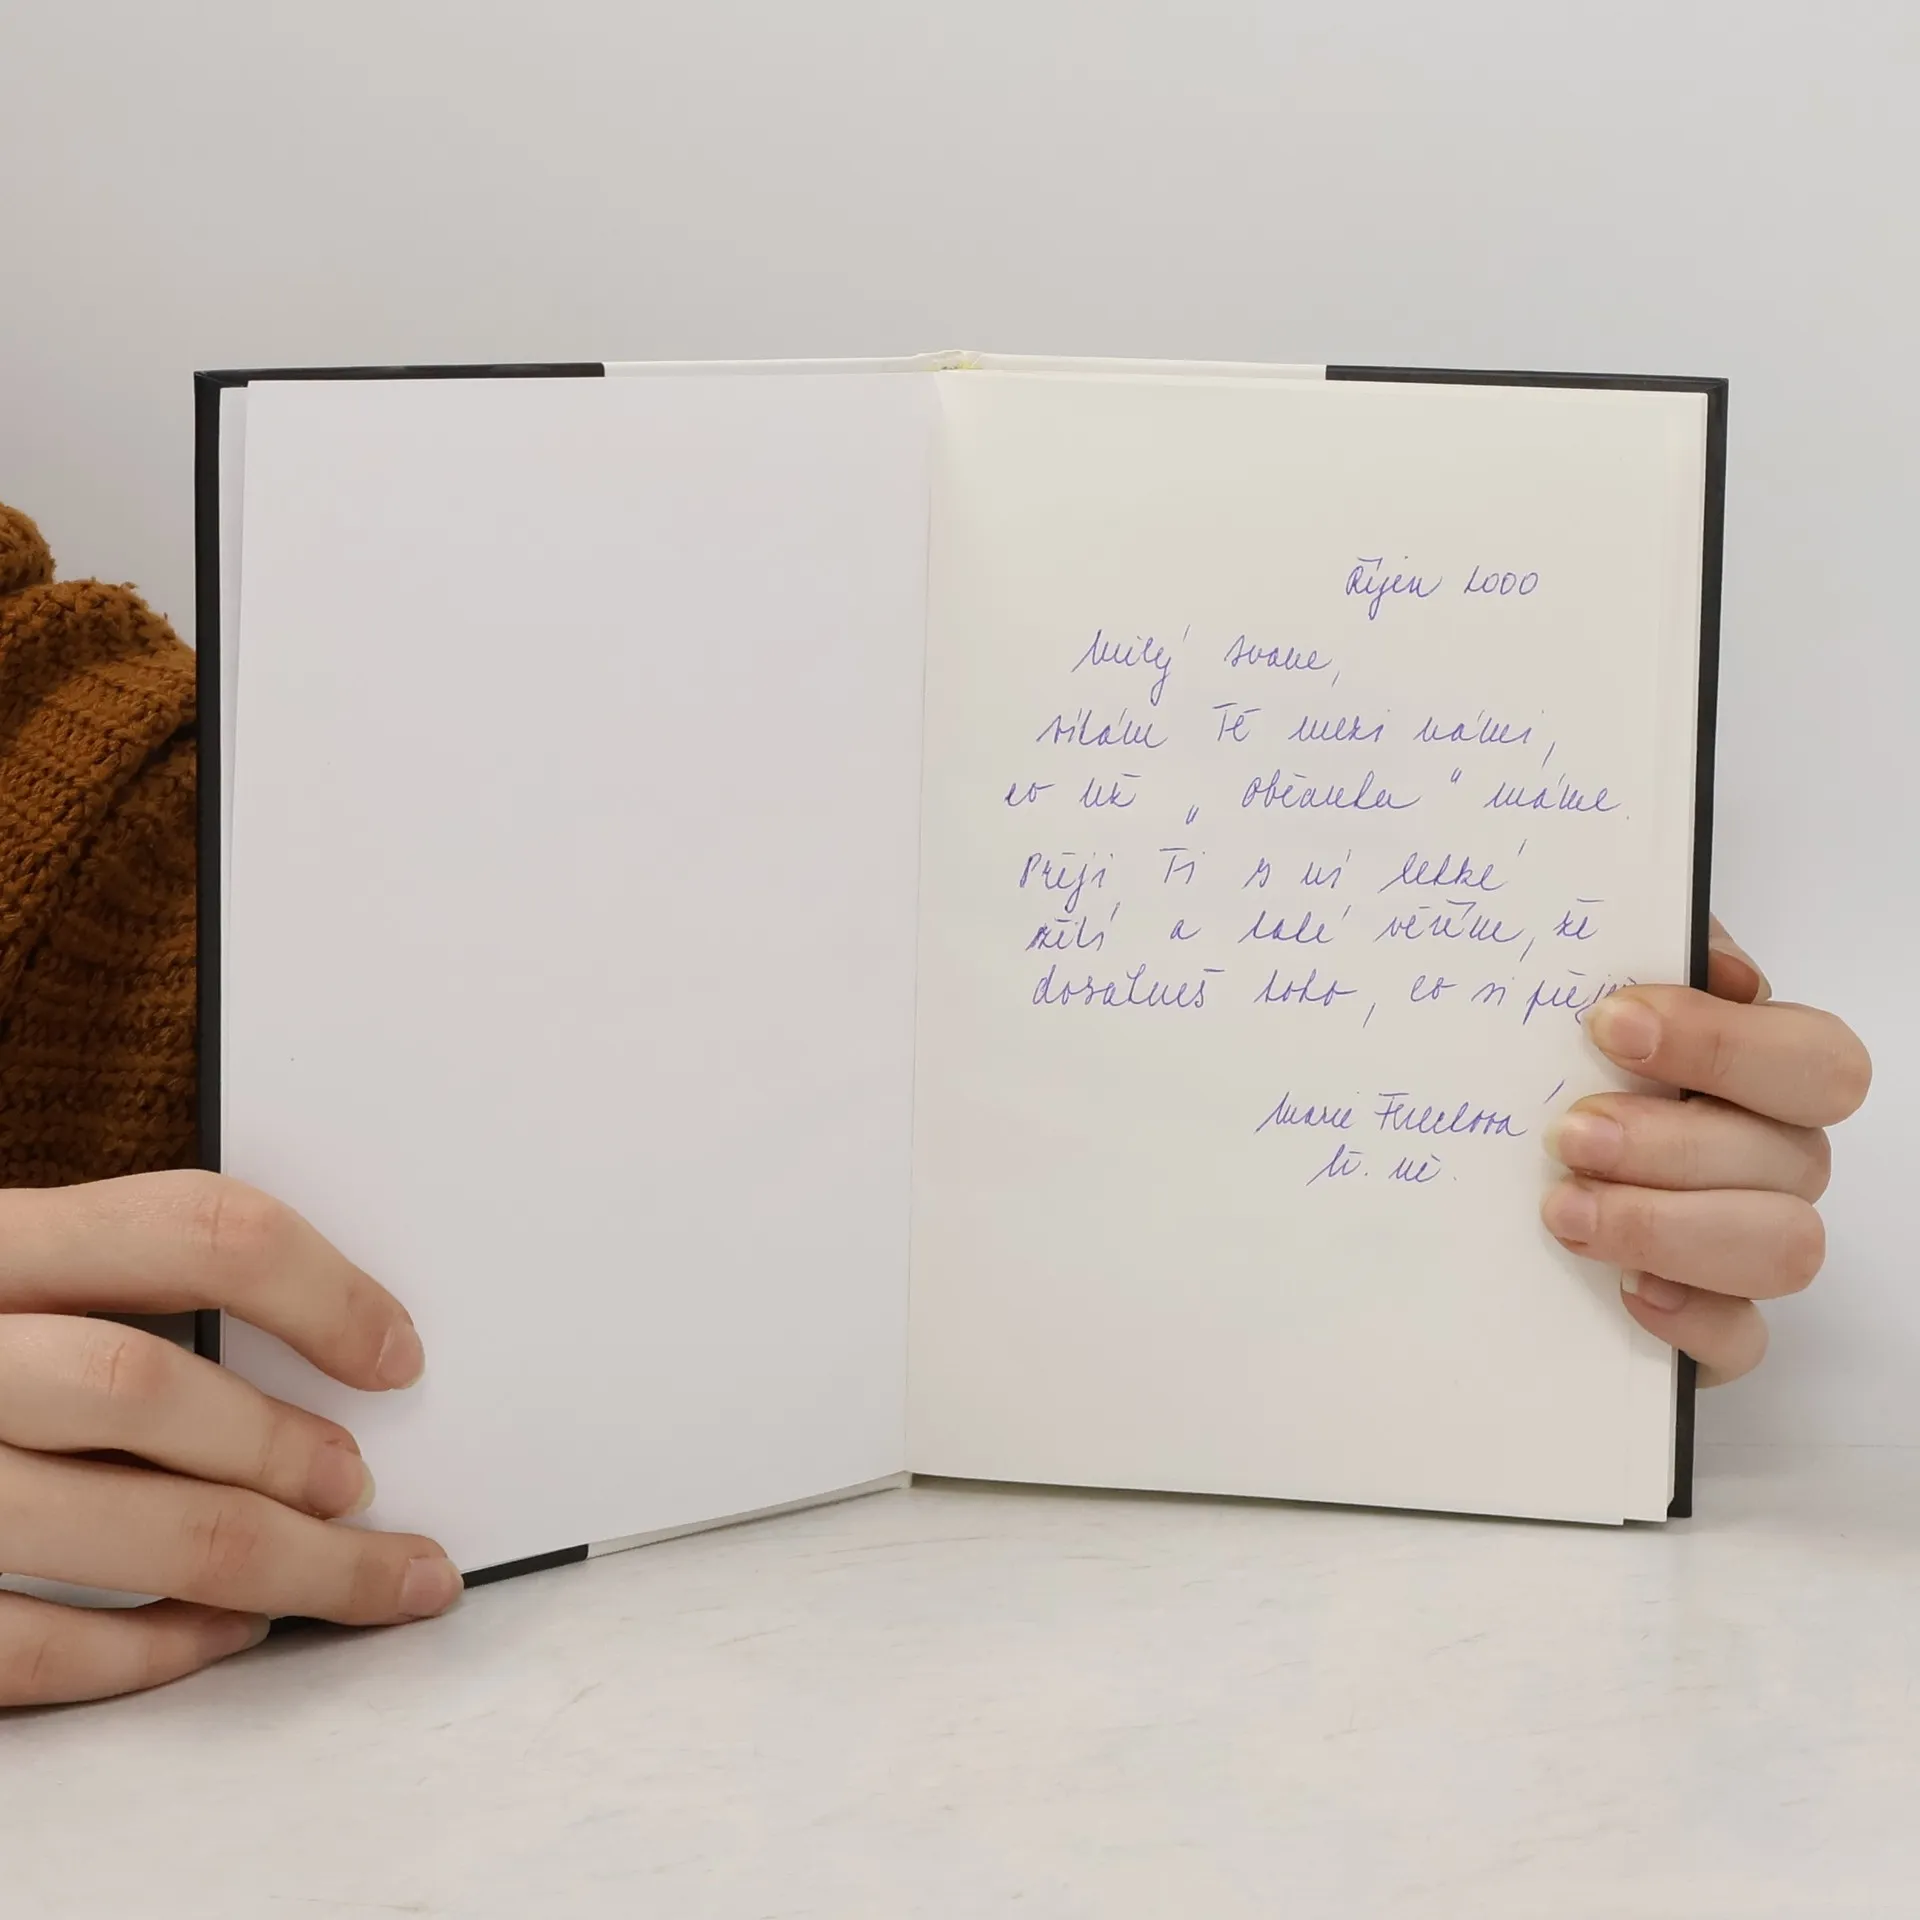 Říjen 2000
Milý Ivane,
vítám Tě mezi námi,
co už „Občanku" máme.
Přeji Ti s ní lehké
žití a také věřím, že
dosáhneš toho, co si přeješ
Marie
tř. uč.